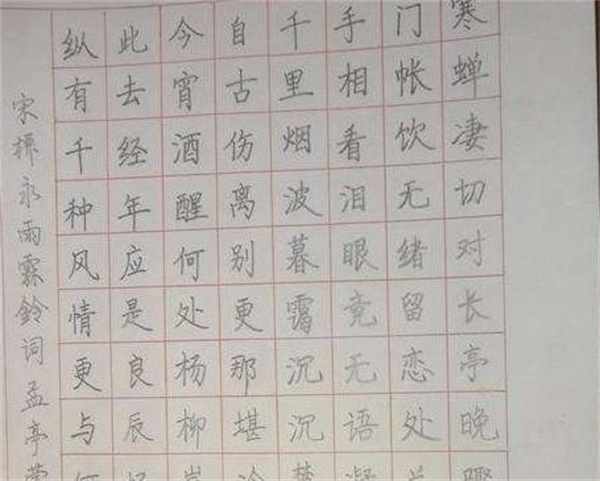 寒蝉凄切对长亭晚骤
门帐饮无绪留恋处兰
手相看泪眼竟无语凝
千里烟波暮霭沉沉楚
自古伤离别更那堪冷
今宵酒醒何处杨柳岸
此去经年应是良辰好
纵有千种风情更与何
宋柳永雨霖鈴词孟亭